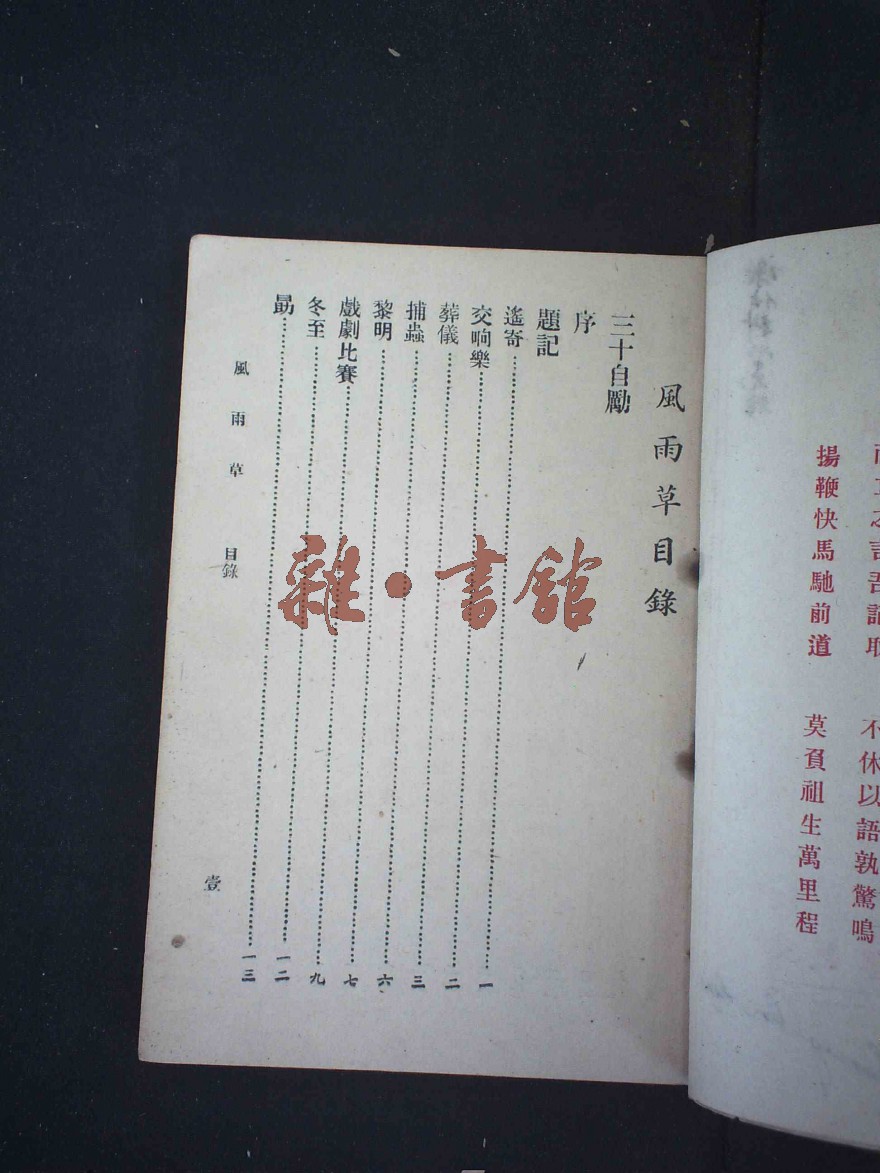 不休以語孰驚鳴
揚鞭快馬馳前道 莫負祖生萬里程
風雨草目錄
三十自勵
序
題記
遙寄……一
交响樂……二
葬儀……三
捕蟲……六
黎明……七
戲劇比賽……九
冬至……一二
勗……一三
風雨草 目錄 壹
雜·書館